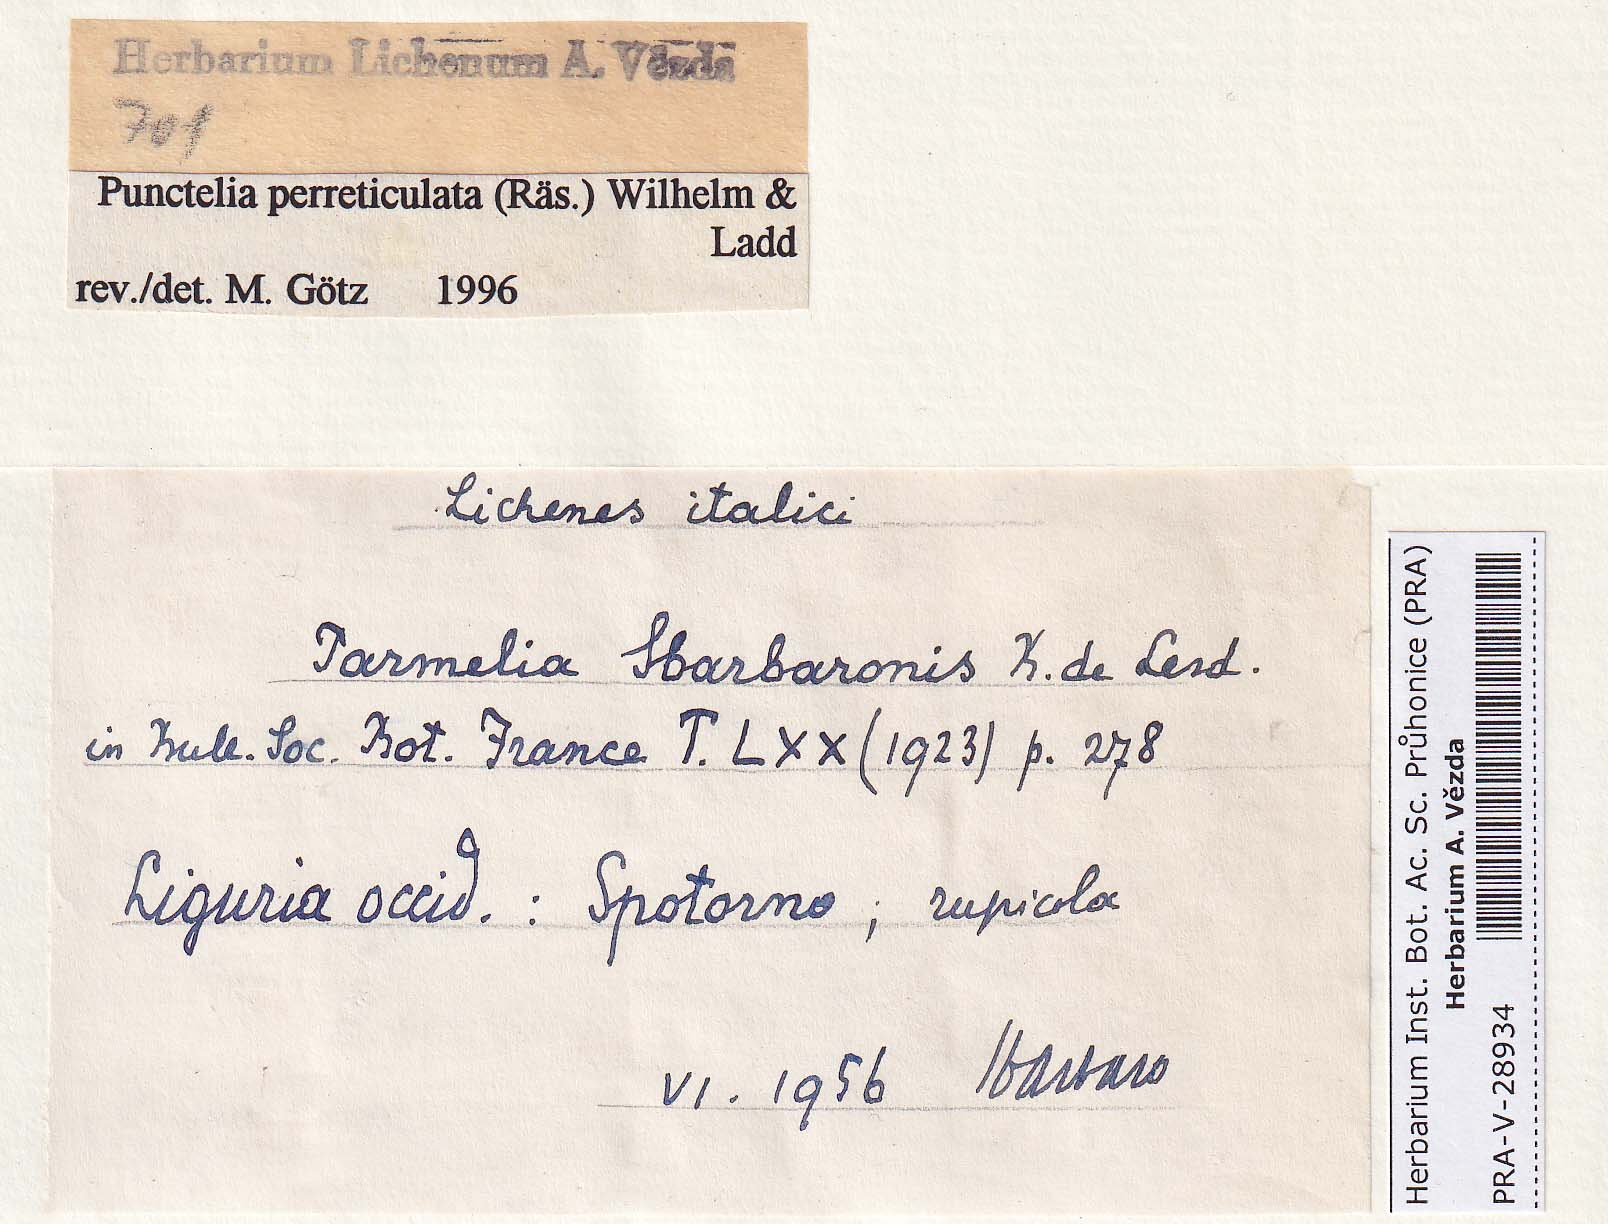 Herbarium Lichenum A. Vězda
701
Punctelia perreticulata (Räs.) Wilhelm &
Ladd
rev./det. M. Götz 1996
Lichenes italici
Parmelia Sbarbaronis B. de Lesd.
in Bull. Soc. Bot. France T. LXX (1923) p. 278
Liguria occid. : Spotorno ; rupicola
VI. 1956 Sbarbaro
Herbarium Inst. Bot. Ac. Sc. Průhonice (PRA)
Herbarium A. Vězda
PRA-V-28934